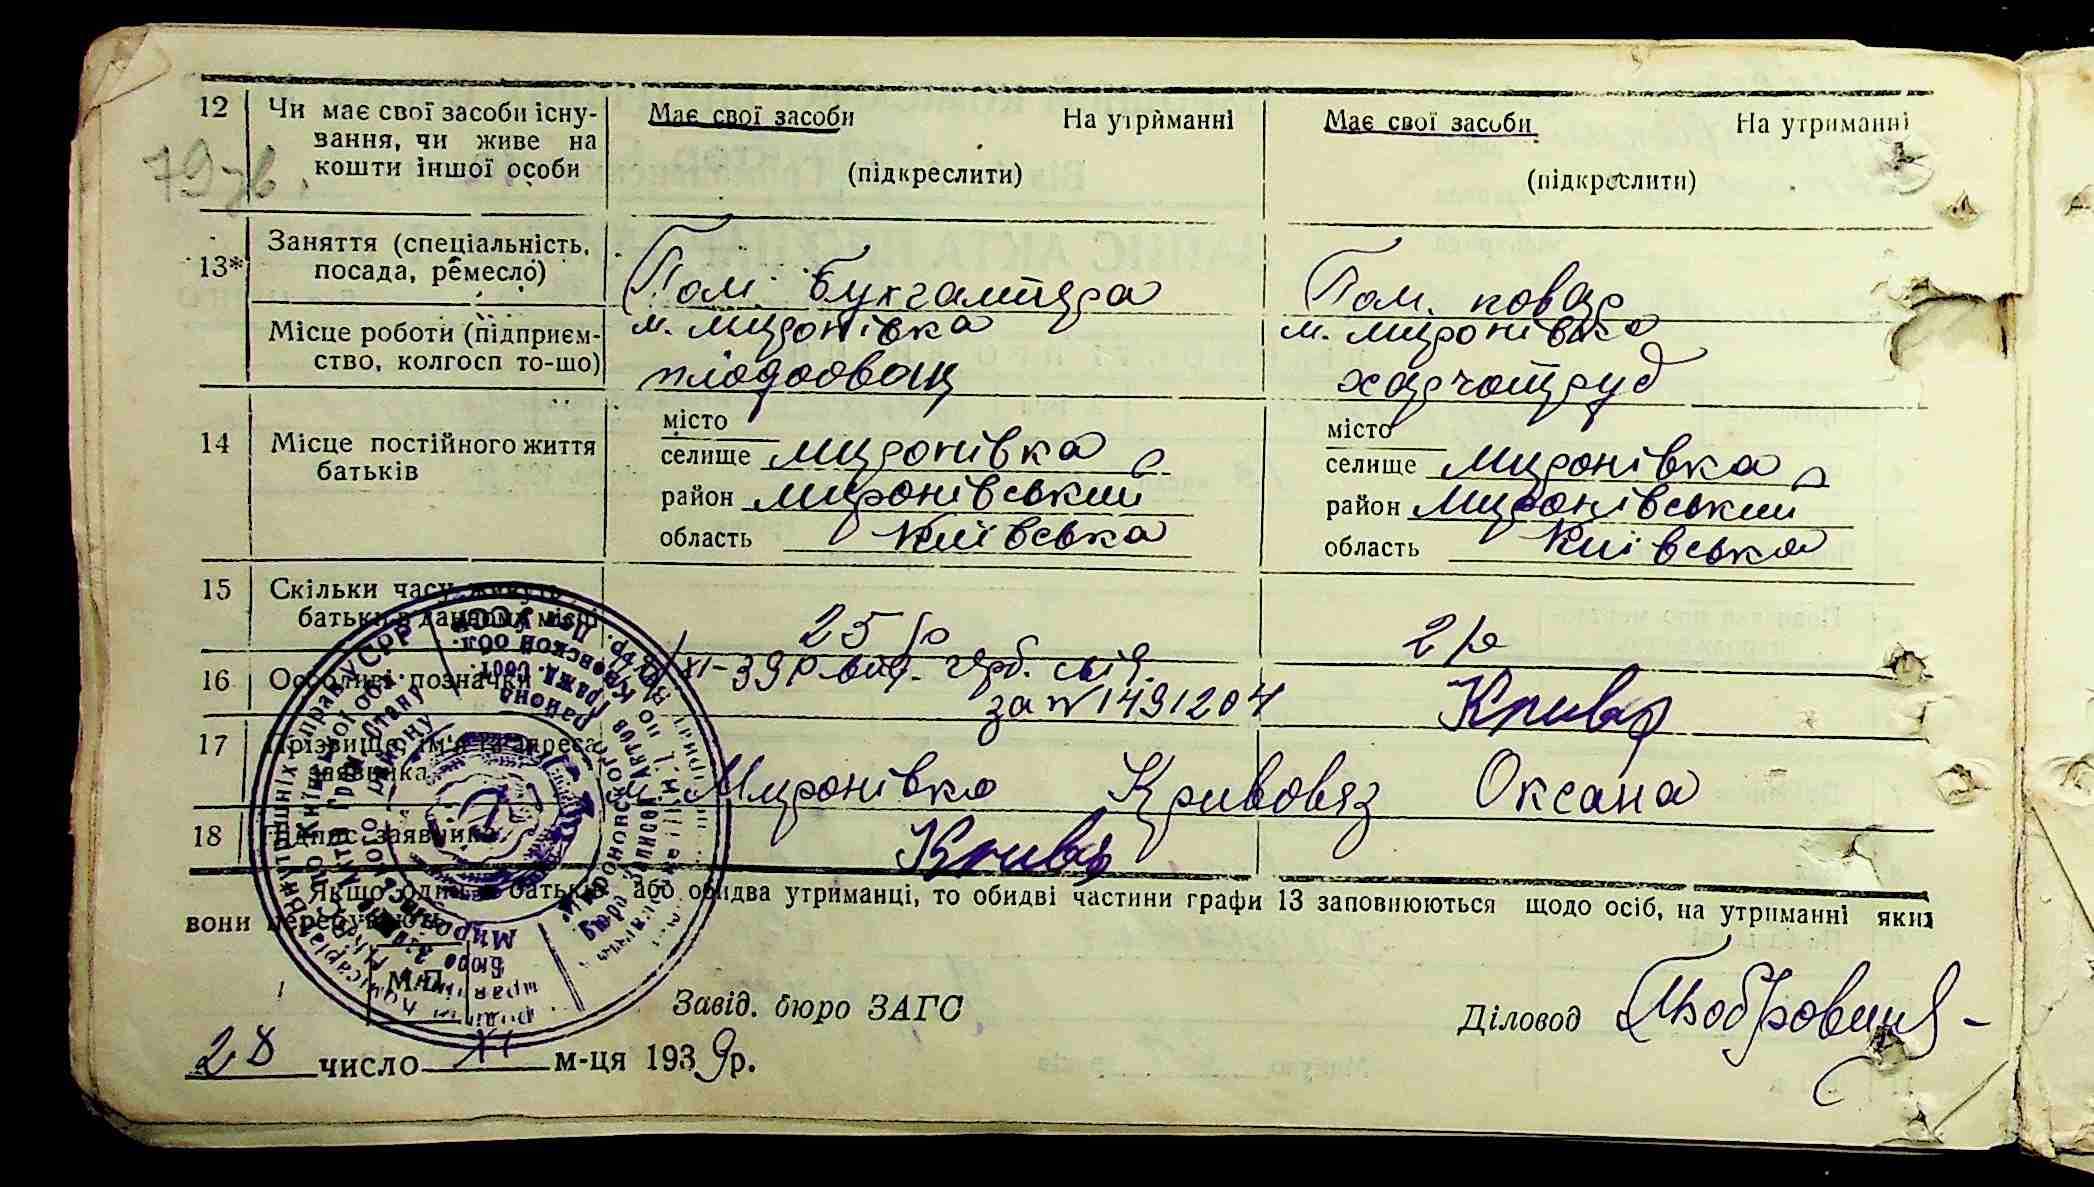 12 Чи має свої засоби існу- Має свої засоби На утриманні Має свої засоби На утриманні
вання, чи живе на
кошти іншої особи (підкреслити) (підкреслити)
13* Заняття (спеціальність, посада, ремесло) Пом. бухгалтера Пом. повар
Місце роботи (підприєм- м. Миронівка м. Миронівка
ство, колгосп то-що) харчотруд
14 Місце постійного життя батьків
місто місто
селище Миронівка селище Миронівка
район Миронівський район Миронівський
область Київська область Київська
15 Скільки часу живуть
батьки в данному місці 25 р 2 р
16 Особливі позначки XI-39 р вид. герб. свід.
за № 1491204 Кривов
17 Прізвище, ім'я та адреса
заявника Миронівка Кривовяз Оксана
18 Підпис заявника Кривов
Якщо один з батьків або обидва утриманці, то обидві частини графи 13 заповнюються щодо осіб, на утриманні яких
вони перебувають
М.П.
Завід. бюро ЗАГС Діловод
28 число XI м-ця 1939 р.